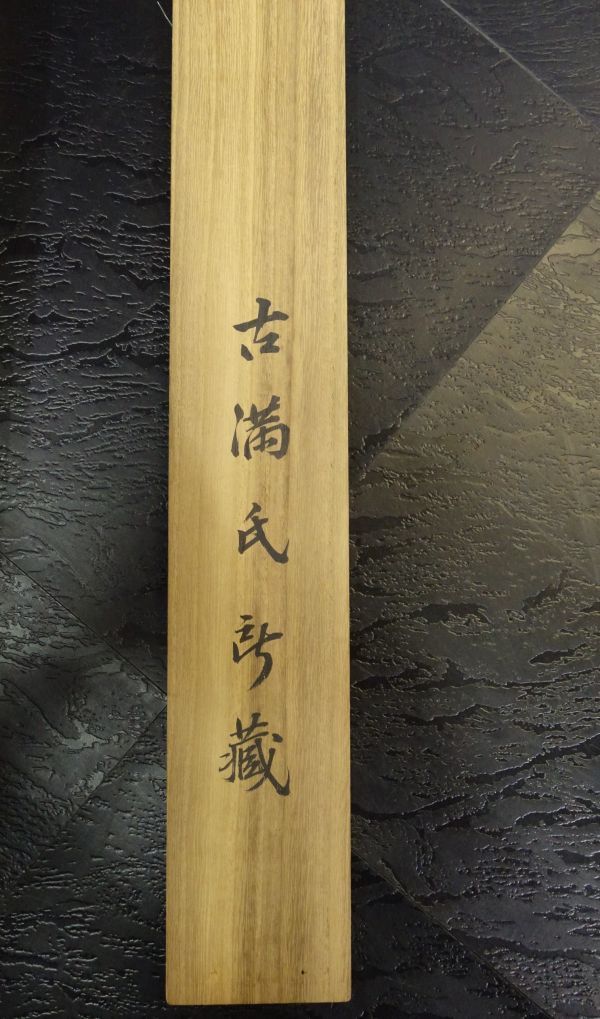 古満氏所蔵